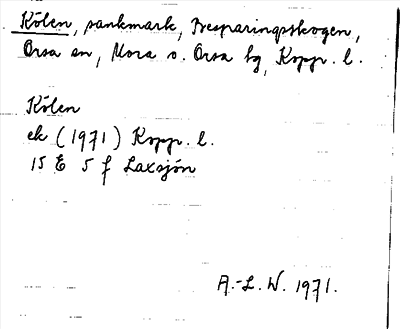 Kölen, sankmark, Besparingsskogen,
Orsa sn, Mora o. Orsa tg, Kopp. l.
Kölen
ek (1971) Kopp. l.
15 E 5 f Laxsjön
A.-L. W. 1971.